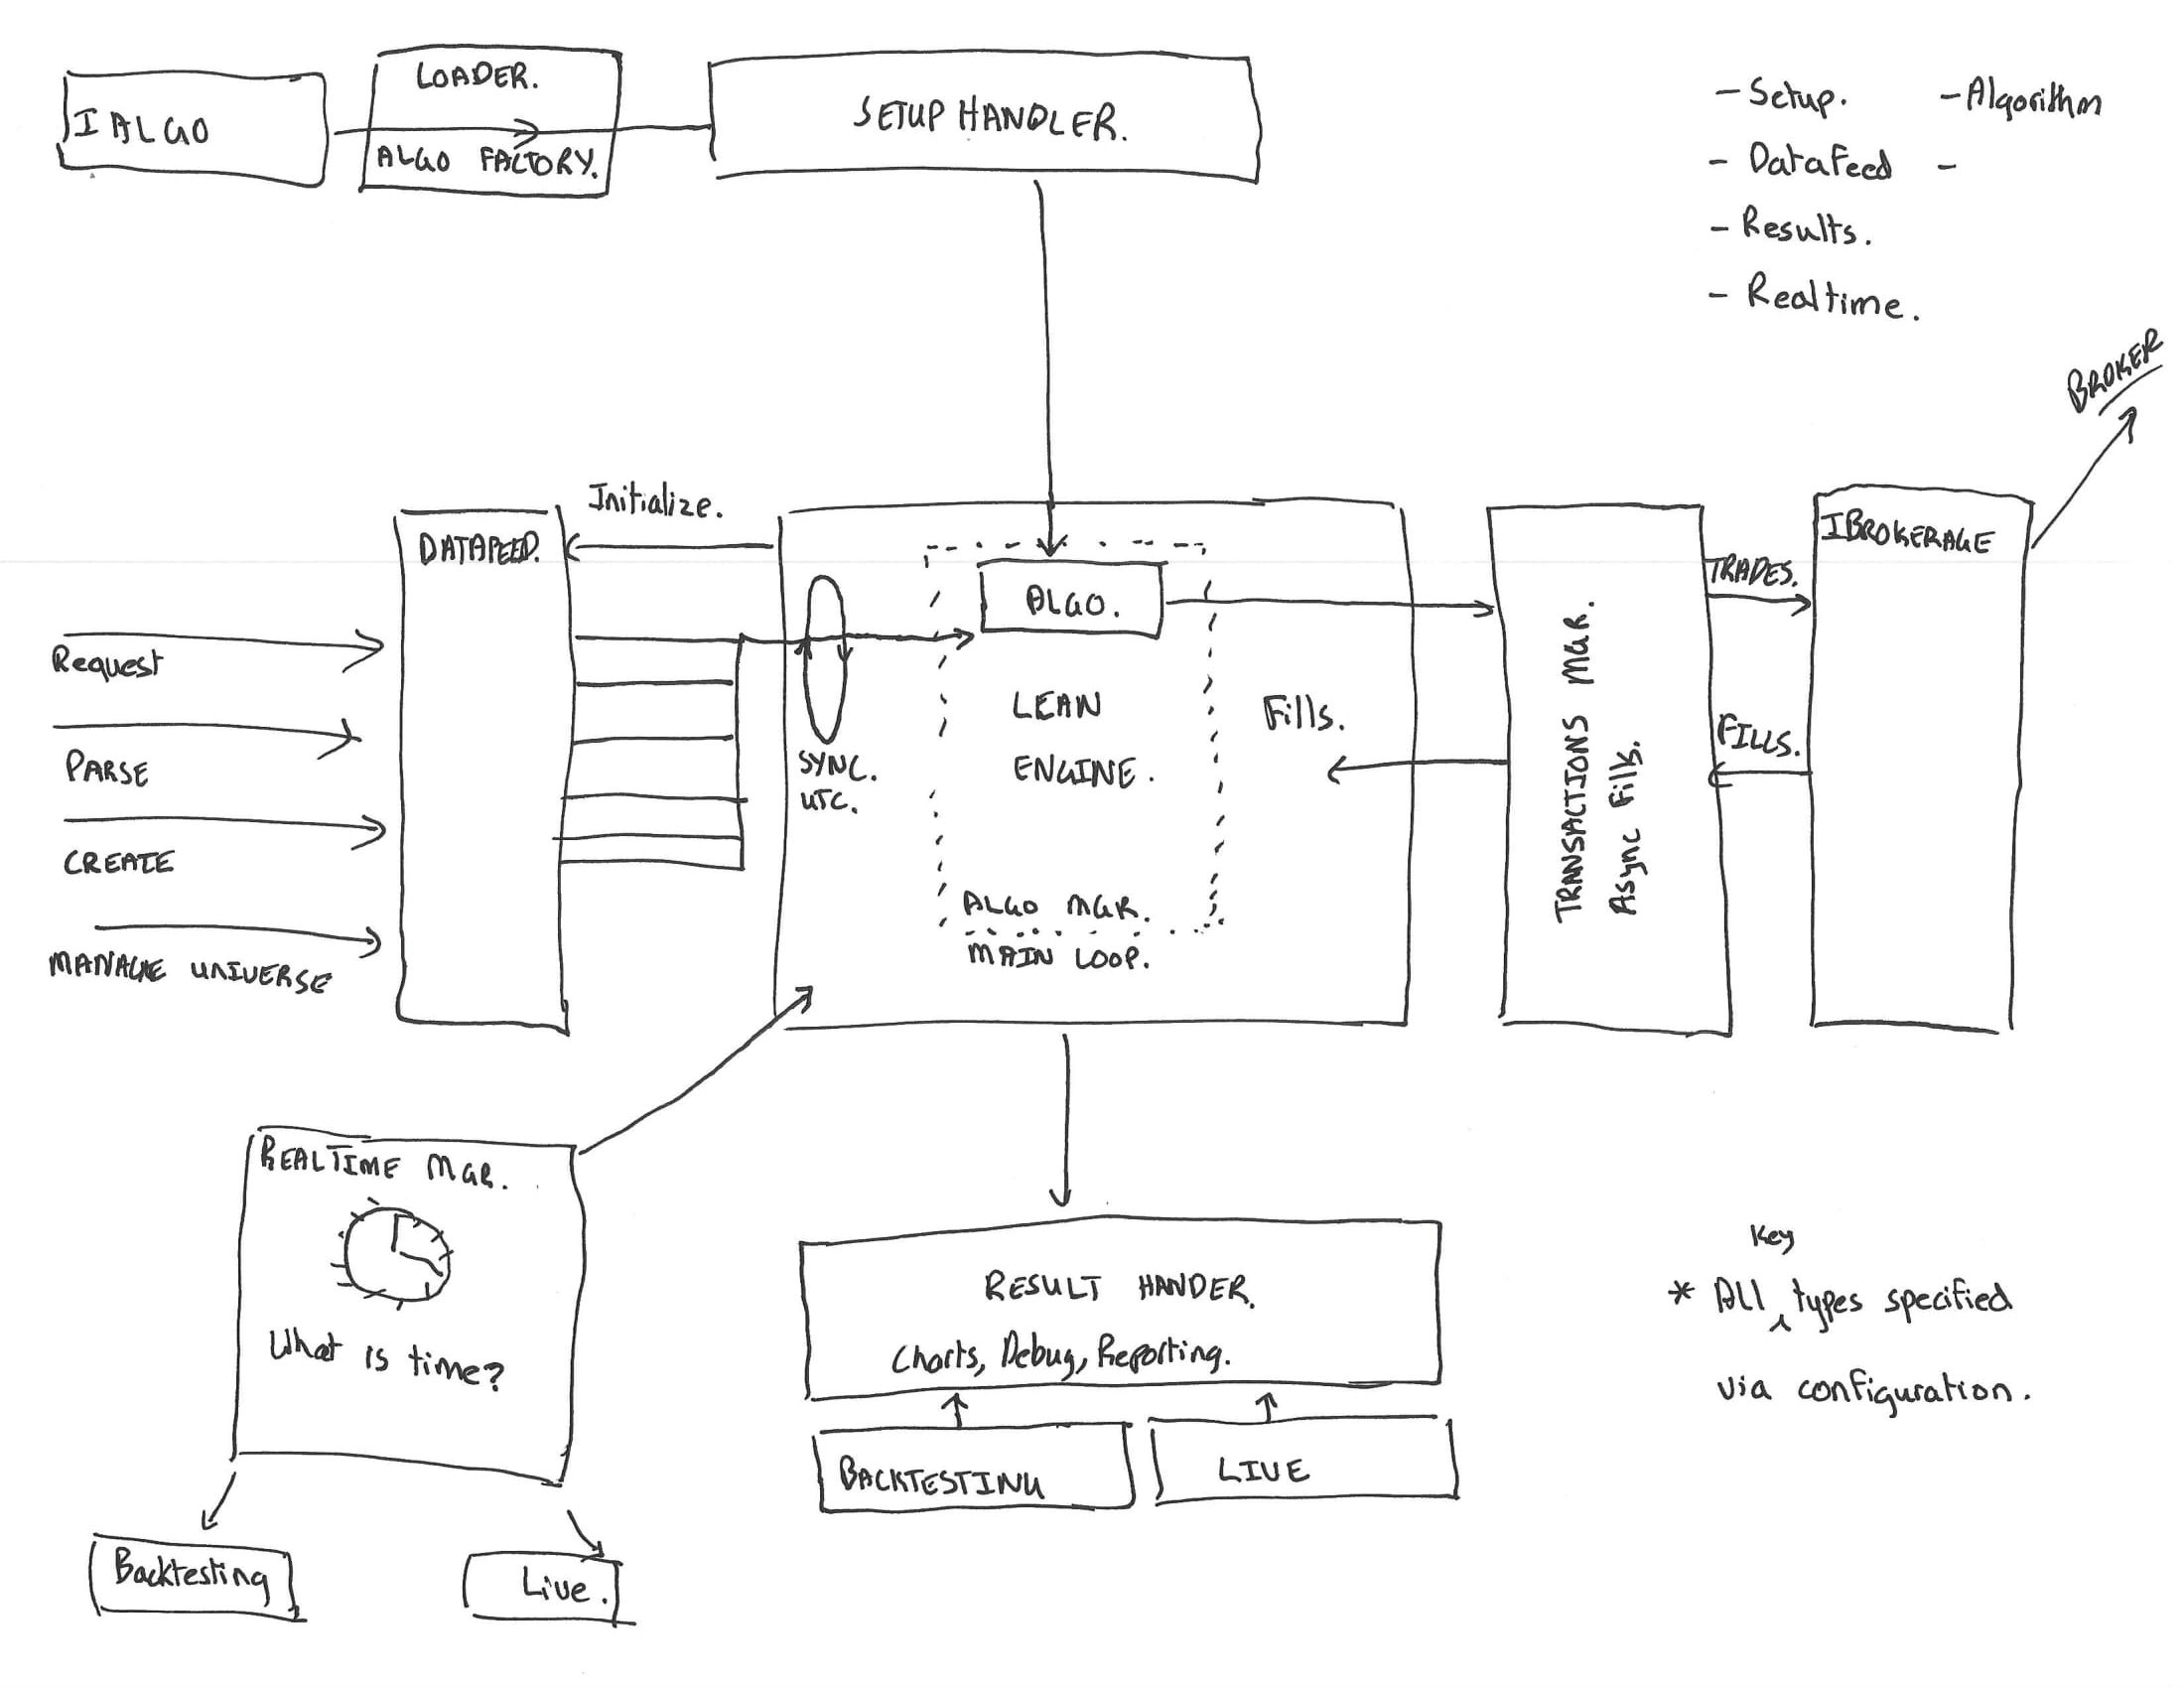 I ALGO
LOADER.
ALGO FACTORY.
SETUP HANDLER.
- Setup.
- Algorithm
- Datafeed
-
- Results.
- Realtime.
BROKER
Initialize.
DATAFEED.
Request
PARSE
CREATE
MANAGE UNIVERSE
SYNC.
UTC.
ALGO.
LEAN
ENGINE.
ALGO MGR.
MAIN LOOP.
Fills.
TRANSACTIONS MGR.
Async Fills.
TRADES.
FILLS.
IBROKERAGE
REALTIME MGR.
What is time?
Backtesting
Live.
RESULT HANDER.
Charts, Debug, Reporting.
BACKTESTING
LIVE
Key
* All types specified
via configuration.